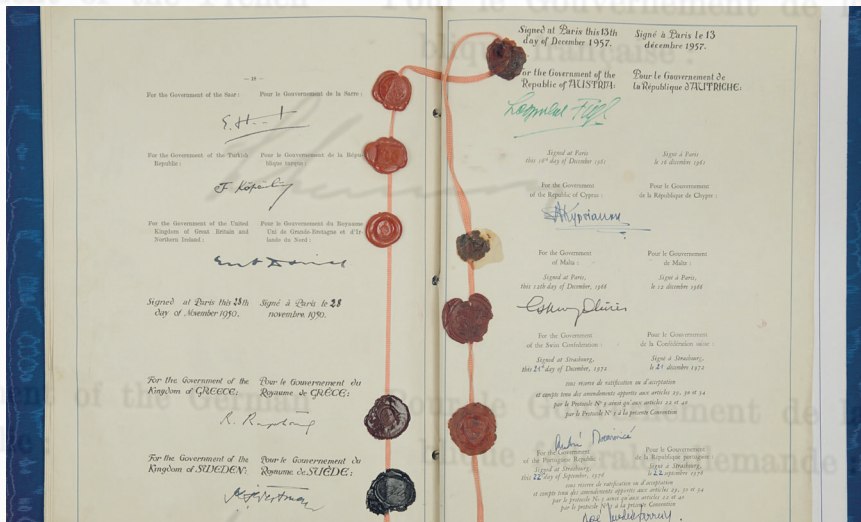 — 18 —
For the Government of the Saar:
Pour le Gouvernement de la Sarre:
For the Government of the Turkish
Republic:
Pour le Gouvernement de la Répu-
blique turque:
F. Köprülü
For the Government of the United
Kingdom of Great Britain and
Northern Ireland:
Pour le Gouvernement du Royaume
Uni de Grande-Bretagne et d'Ir-
lande du Nord:
Signed at Paris this 28th
day of November 1950.
Signé à Paris le 28
novembre 1950.
For the Government of the
Kingdom of GREECE:
Pour le Gouvernement du
Royaume de GRÈCE:
For the Government of the
Kingdom of SWEDEN:
Pour le Gouvernement du
Royaume de SUÈDE:
Signed at Paris this 13th
day of December 1957.
Signé à Paris le 13
décembre 1957.
For the Government of the
Republic of AUSTRIA:
Pour le Gouvernement de
la République d'AUTRICHE:
Leopold Figl
Signed at Paris
this 16th day of December 1961
Signé à Paris
le 16 décembre 1961
For the Government
of the Republic of Cyprus:
Pour le Gouvernement
de la République de Chypre:
Kyprianou
For the Government
of Malta:
Pour le Gouvernement
de Malte:
Signed at Paris,
this 12th day of December, 1966
Signé à Paris,
le 12 décembre 1966
For the Government
of the Swiss Confederation:
Pour le Gouvernement
de la Confédération suisse:
Signed at Strasbourg,
this 21st day of December, 1972
Signé à Strasbourg,
le 21 décembre 1972
sous réserve de ratification ou d'acceptation
et compte tenu des amendements apportés aux articles 29, 30 et 34
par le Protocole N° 3 ainsi qu'aux articles 22 et 40
par le Protocole N° 5 à la présente Convention
For the Government
of the Portuguese Republic:
Pour le Gouvernement
de la République portugaise:
Signed at Strasbourg,
this 22nd day of September, 1976
Signé à Strasbourg,
le 22 septembre 1976
sous réserve de ratification ou d'acceptation
et compte tenu des amendements apportés aux articles 29, 30 et 34
par le protocole N° 3 ainsi qu'aux articles 22 et 40
par le protocole N° 5 à la présente Convention